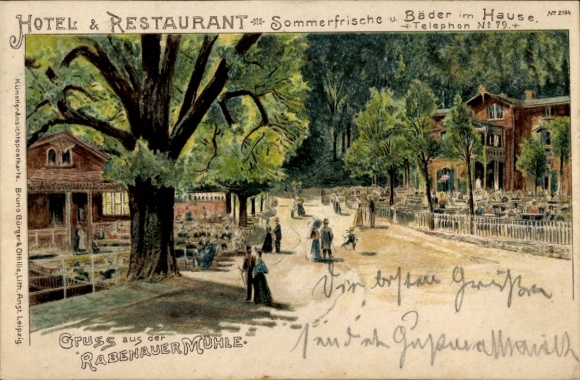 HOTEL & RESTAURANT Sommerfrische u. Bäder im Hause.
Telephon No 79.
No 2194.
Künstler-Ansichtspostkarte. Bruno Bürger & Ottillie, Lith. Anst. Leipzig
GRUSS aus der
RABENAUER MÜHLE.
besten Grüßen
sendet